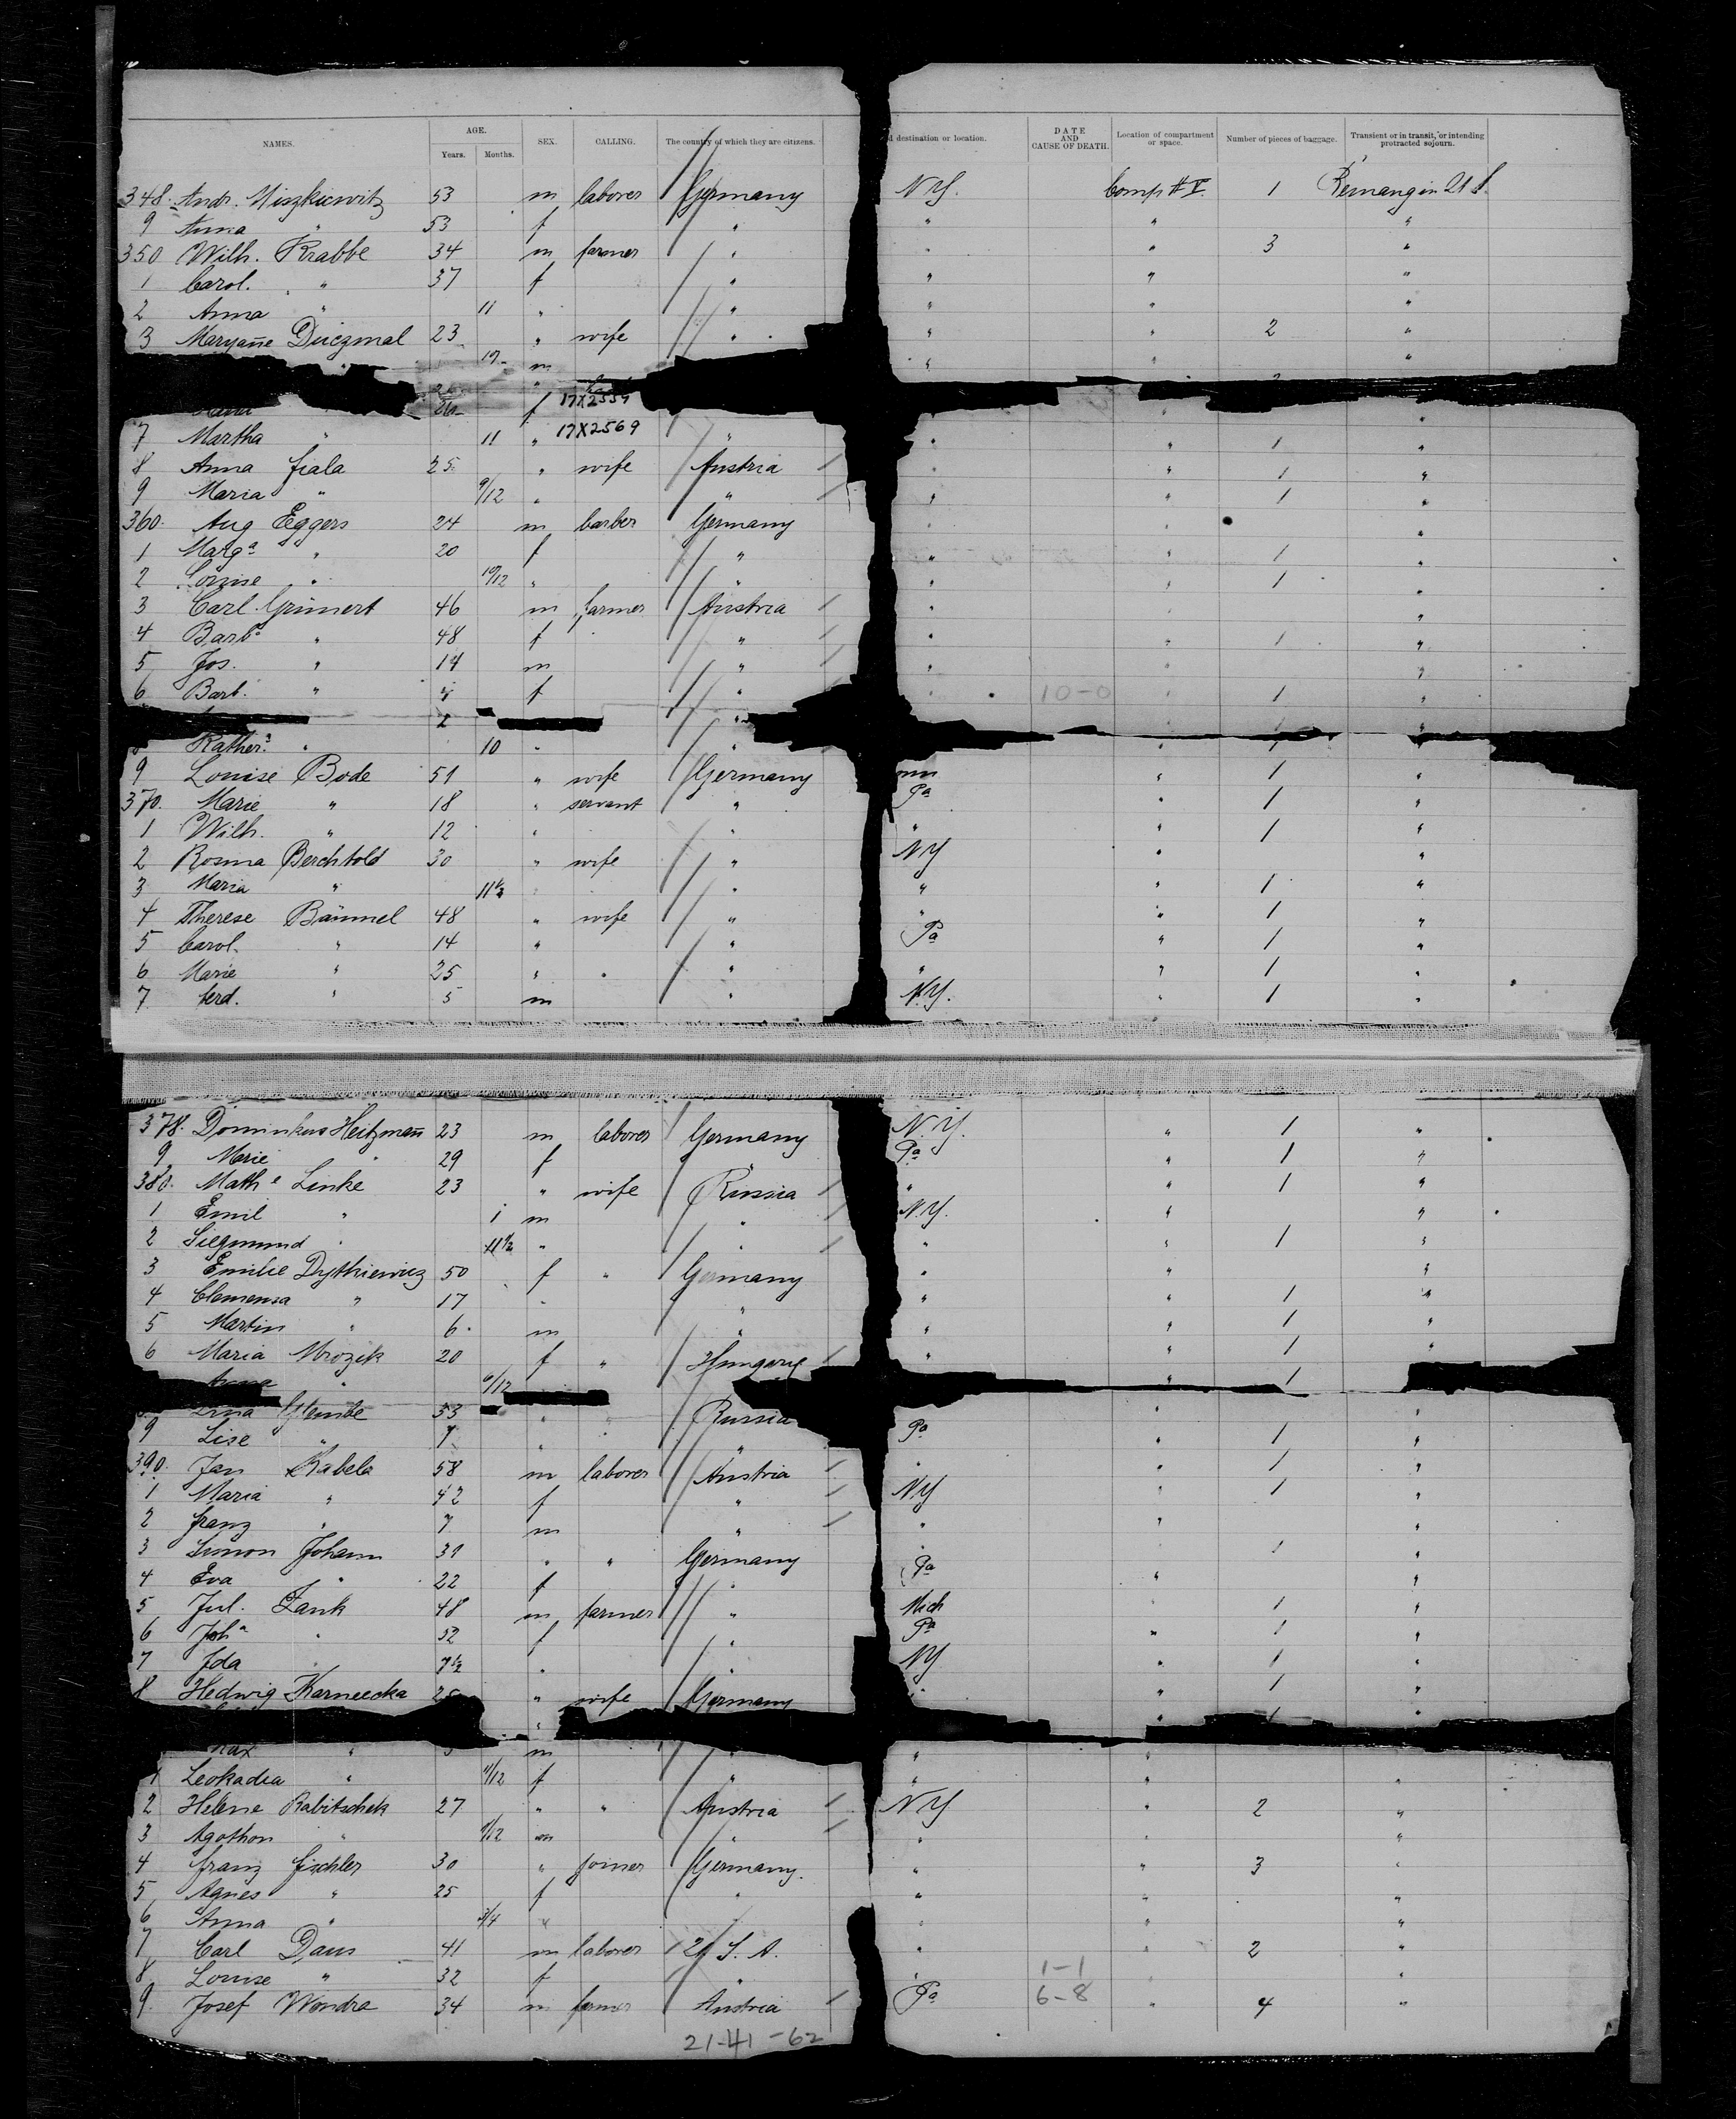 NAMES. AGE. Years. Months. SEX. CALLING. The country of which they are citizens. d destination or location. DATE AND CAUSE OF DEATH. Location of compartment or space. Number of pieces of baggage. Transient or in transit, or intending protracted sojourn.
348. Andr. Miszkiewitz 53 m laborer Germany N.Y. Comp # V 1
9 Anna " 53 f " " " "
350 Wilh. Krabbe 34 m farmer " " " 3 "
1 Carol. " 37 f " " " "
2 Anna " 11 " " " " "
3 Maryañe Duczmal 23 " wife " " " 2 "
m " " "
26 f 17X2559 " "
7 Martha " 11 " 17X2569 " " " 1 "
8 Anna Fiala 25 " wife Austria " " 1 "
9 Maria " 9/12 " " " " 1 "
360. Aug Eggers 24 m barber Germany " " "
1 Margª " 20 f " " " 1 "
2 Louise " 10/12 " " " " 1 "
3 Carl Grünert 46 m farmer Austria " " "
4 Barbª " 48 f " " " 1 "
5 Jos. " 14 m " " " "
6 Barb. " f " " 10-0 " 1 "
2 "
Kather. " 10 " " " 1 "
9 Louise Bode 51 " wife Germany " 1 "
370. Marie " 18 " servant " Pa " 1 "
1 Wilh. " 12 " " " " 1 "
2 Rosina Berchtold 30 " wife " NY " "
3 Maria " 11½ " " " " 1 "
4 Therese Bäumel 48 " wife " " " 1 "
5 Carol. " 14 " " Pa " 1 "
6 Marie " 25 " " " " 1 "
7. Ferd. " 5 m " N.Y. " 1 "
378. Dominikus Heitzmañ 23 m laborer Germany N.Y. " 1 "
9 Marie " 29 f " Pa " 1 "
380. Mathe Linke 23 " wife Russia " " 1 "
1 Emil " 1 m " N.Y. " "
2 Siegmund " 11½ " " " " 1 "
3 Emilie Dythiewicz 50 f " Germany " " "
4 Clemensa " 17 " " " " 1 "
5 Martin " 6 m " " " 1 "
6 Maria Mrozik 20 f " Hungary " " 1 "
Anna " 6/12 " 1
53 " " Russia " "
9 Lise " 7 " " Pa " 1 "
390. Jan Kabela 58 m laborer Austria " " 1 "
1 Maria " 42 f " NY " 1 "
2 Franz " 7 m " " " "
3 Simon Johann 31 " " Germany " 1 "
4 Eva " 22 f " Pa " "
5 Jul. Zank 48 m farmer " Mich " 1 "
6 Johª " 52 f " Pa " 1 "
7 Ida " 7½ " " NY " 1 "
8 Hedwig Karneecka " wife Germany " " 1 "
" " 1 "
Max " m " " "
1 Leokadia " 11/12 f " " " "
2 Helene Rabitschek 27 " " Austria NY " 2 "
3 Agothon " 1/12 m " " " "
4 Franz Fischler 30 " joiner Germany. " " 3 "
5 Agnes " 25 f " " " "
6 Anna " 3/4 " " " " "
7 Carl Daus 41 m laborer U.S.A. " " 2 "
8 Louise " 32 f " " 1-1 " "
9. Josef Wondra 34 m farmer Austria Pa 6-8 " 4 "
21-41-62